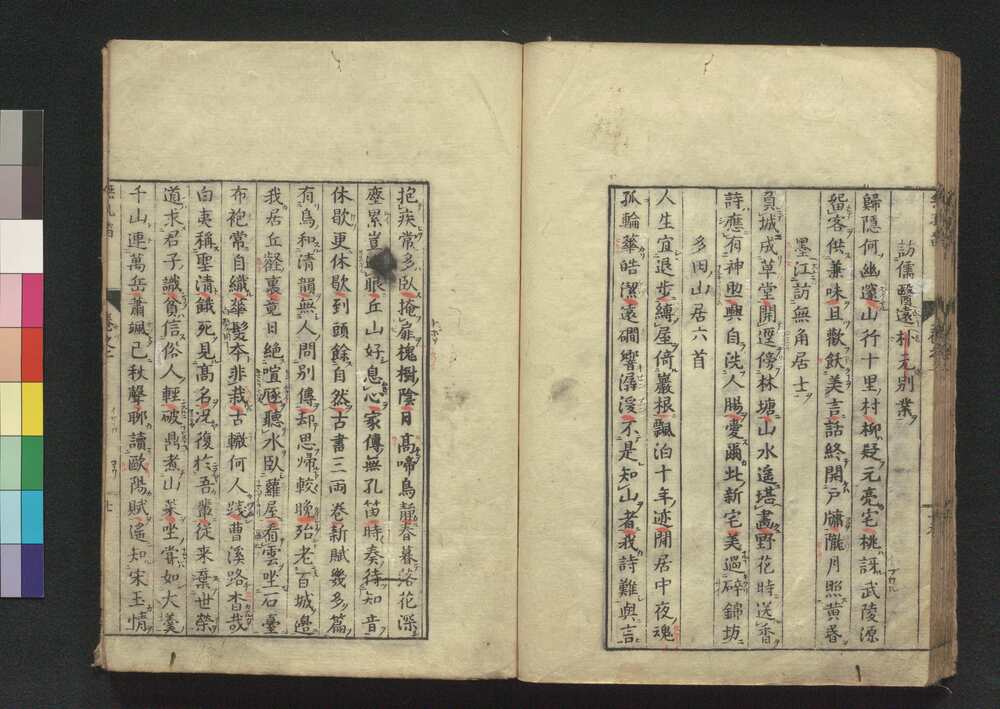 訪儒醫遠朴元別業
歸隱何幽邃山行十里村柳疑元亮宅桃訝武陵源
留客供兼味且歡飲美言話終開戸牖朧月照黄昏
墨江訪無角居士
負城成草堂開逕傍林塘山水遙堪畫野花時送香
詩應有神助興自洗人腸愛爾此新宅美過碎錦坊
多田山居六首
人生宜退步縛屋倚巖根飄泊十年迹閑居中夜魂
孤輪華皓潔遠磵響潺湲不是知山者我詩難與言
抱疾常多臥掩扉槐樹陰日高啼鳥靜春暮落花深
塵累豈 眼丘山好息心家傳無孔笛時奏待知音
休歇更休歇到頭餘自然古書三両卷新賦幾多篇
有鳥和清韻無人問別傳却思帰較晚殆老百城邊
我居丘壑裏竟日絶喧豗聽水臥蘿屋看雲坐石臺
布袍常自織華髪本非栽古轍何人踐曹溪路杳哉
伯夷稱聖清餓死見高名况復於吾輩従来棄世榮
道求君子識貧信俗人輕破鼎煮山菜坐嘗如大羹
千山連萬岳蕭颯已秋聲聊讀歐陽賦遙知宋玉情
卷之二
七